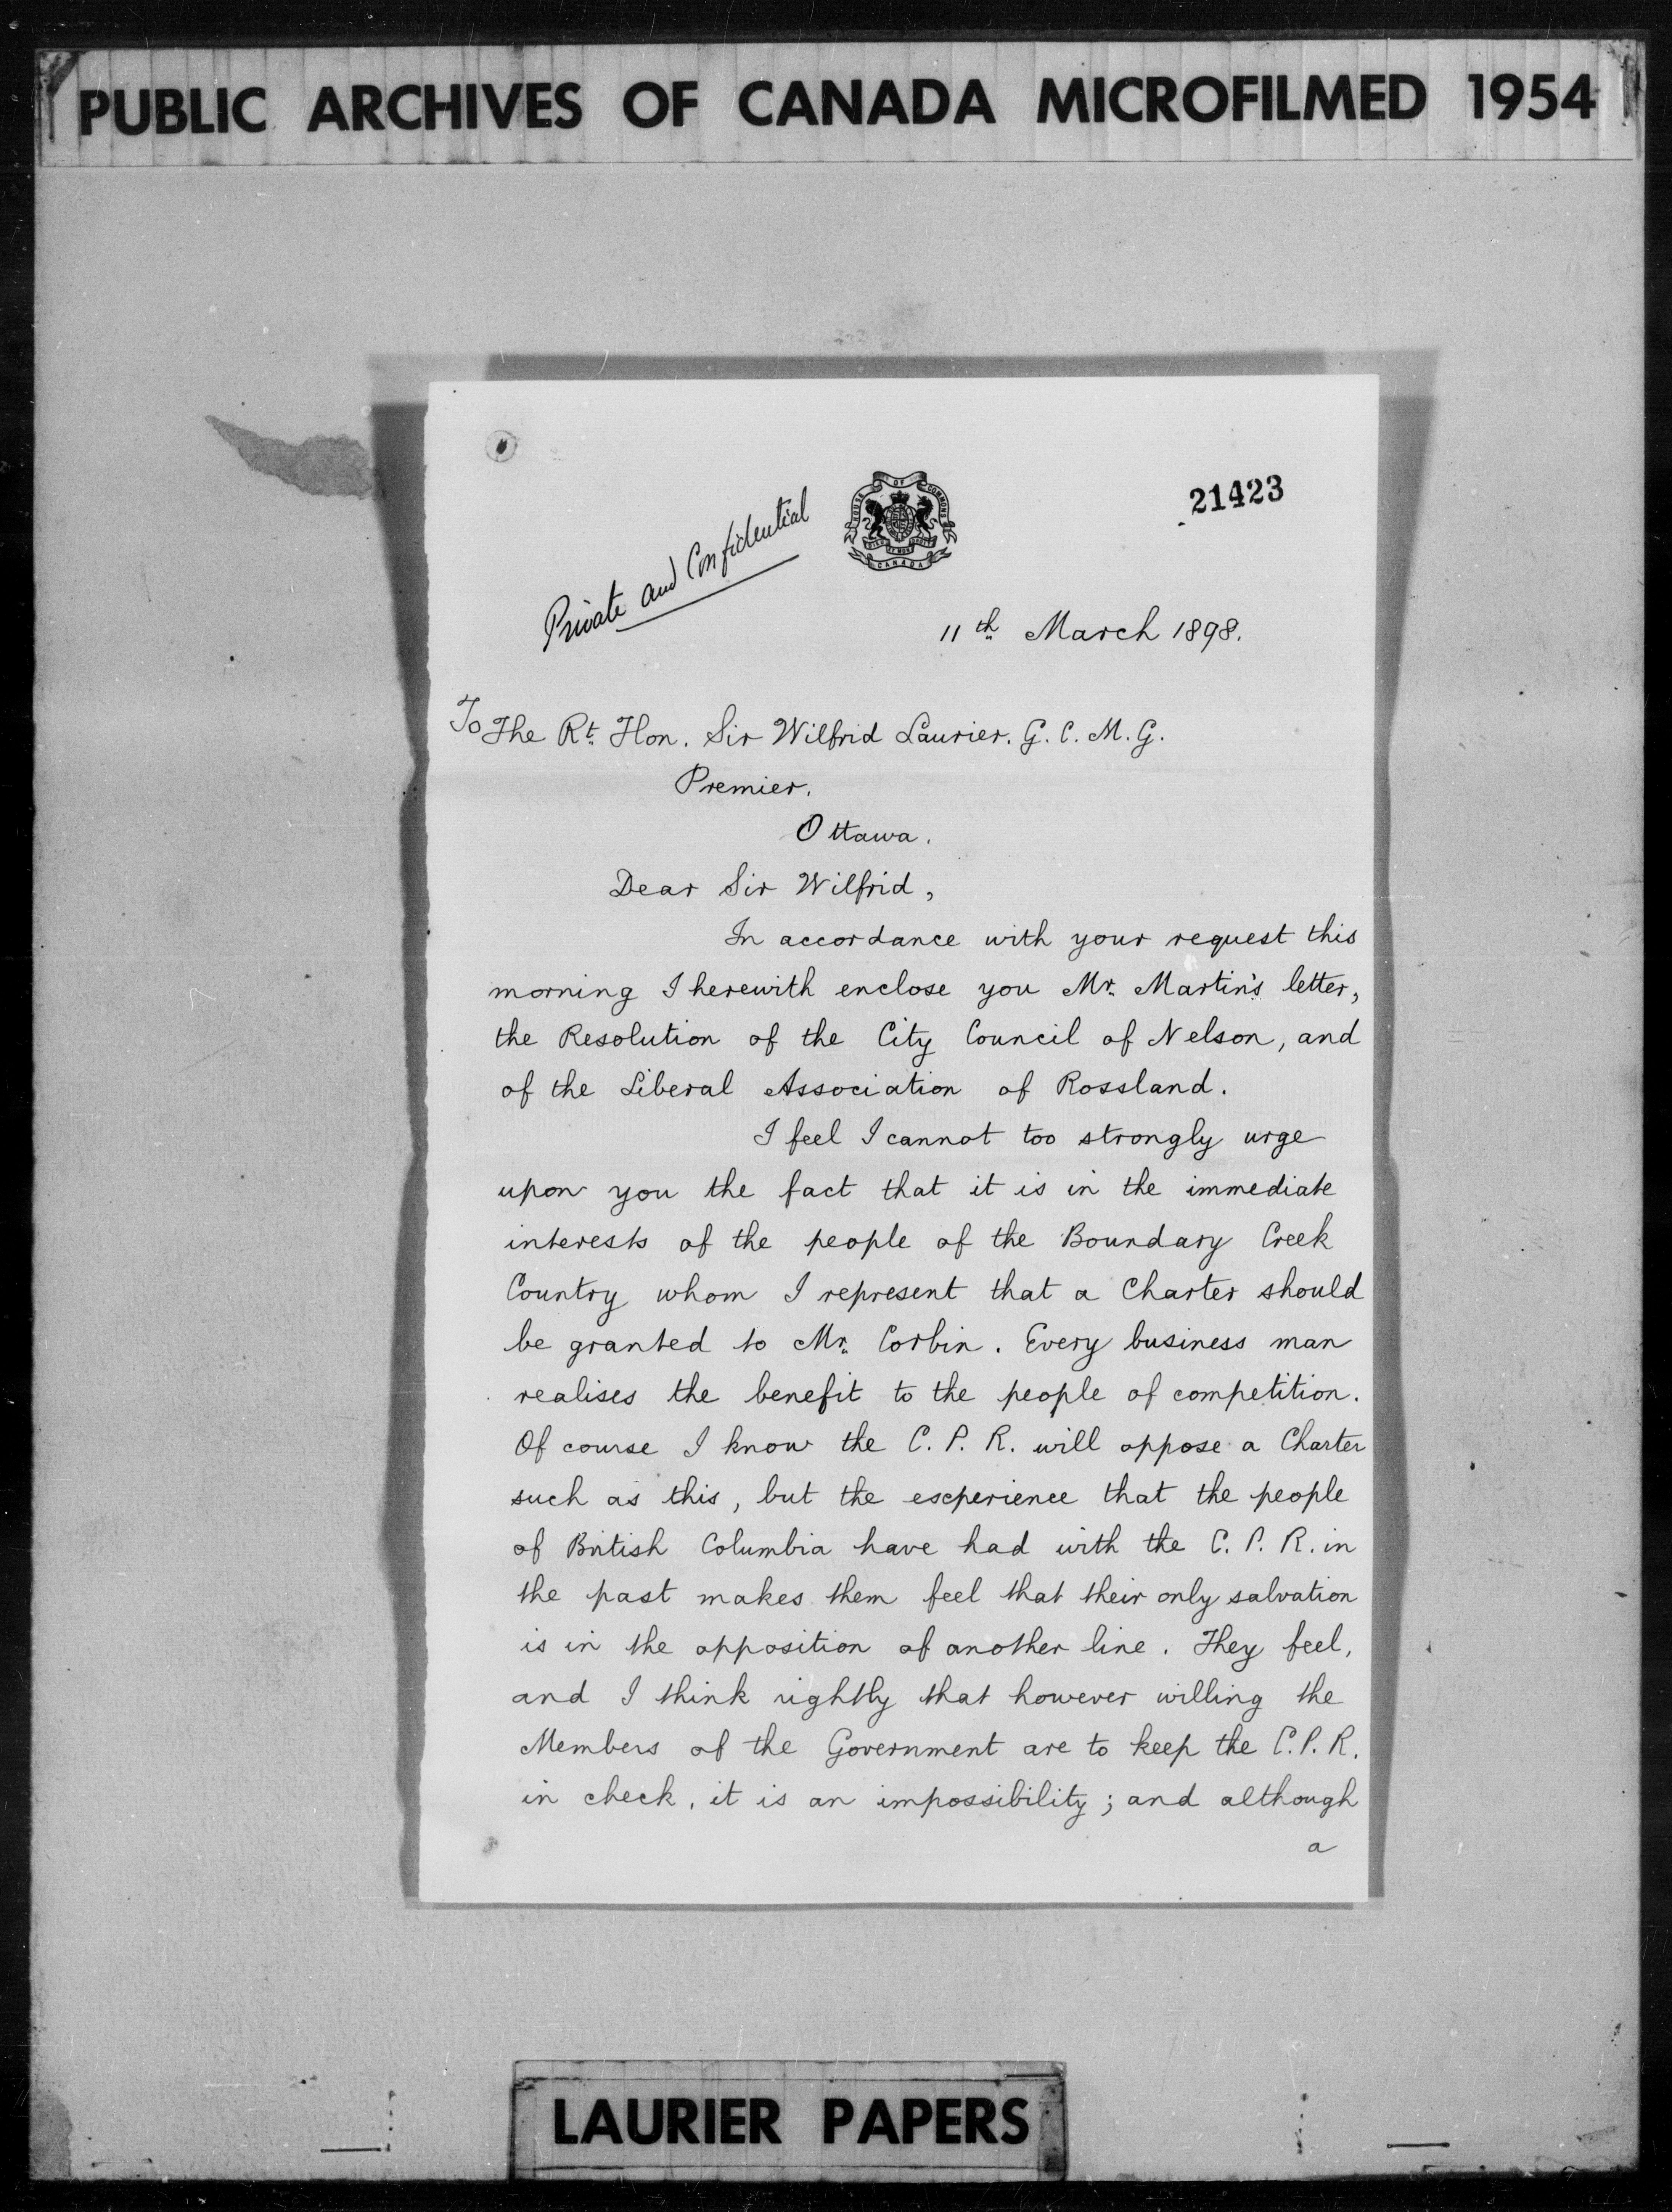 PUBLIC ARCHIVES OF CANADA MICROFILMED 1954
21423
HOUSE OF COMMONS
CANADA
Private and Confidential
11th March 1898.
To The Rt. Hon. Sir Wilfrid Laurier. G. C. M. G.
Premier.
Ottawa.
Dear Sir Wilfrid,
In accordance with your request this
morning I herewith enclose you Mr. Martin's letter,
the Resolution of the City Council of Nelson, and
of the Liberal Association of Rossland.
I feel I cannot too strongly urge
upon you the fact that it is in the immediate
interests of the people of the Boundary Creek
Country whom I represent that a Charter should
be granted to Mr. Corbin. Every business man
realises the benefit to the people of competition.
Of course I know the C. P. R. will oppose a Charter
such as this, but the experience that the people
of British Columbia have had with the C. P. R. in
the past makes them feel that their only salvation
is in the opposition of another line. They feel,
and I think rightly that however willing the
Members of the Government are to keep the C. P. R.
in check, it is an impossibility; and although
a
LAURIER PAPERS